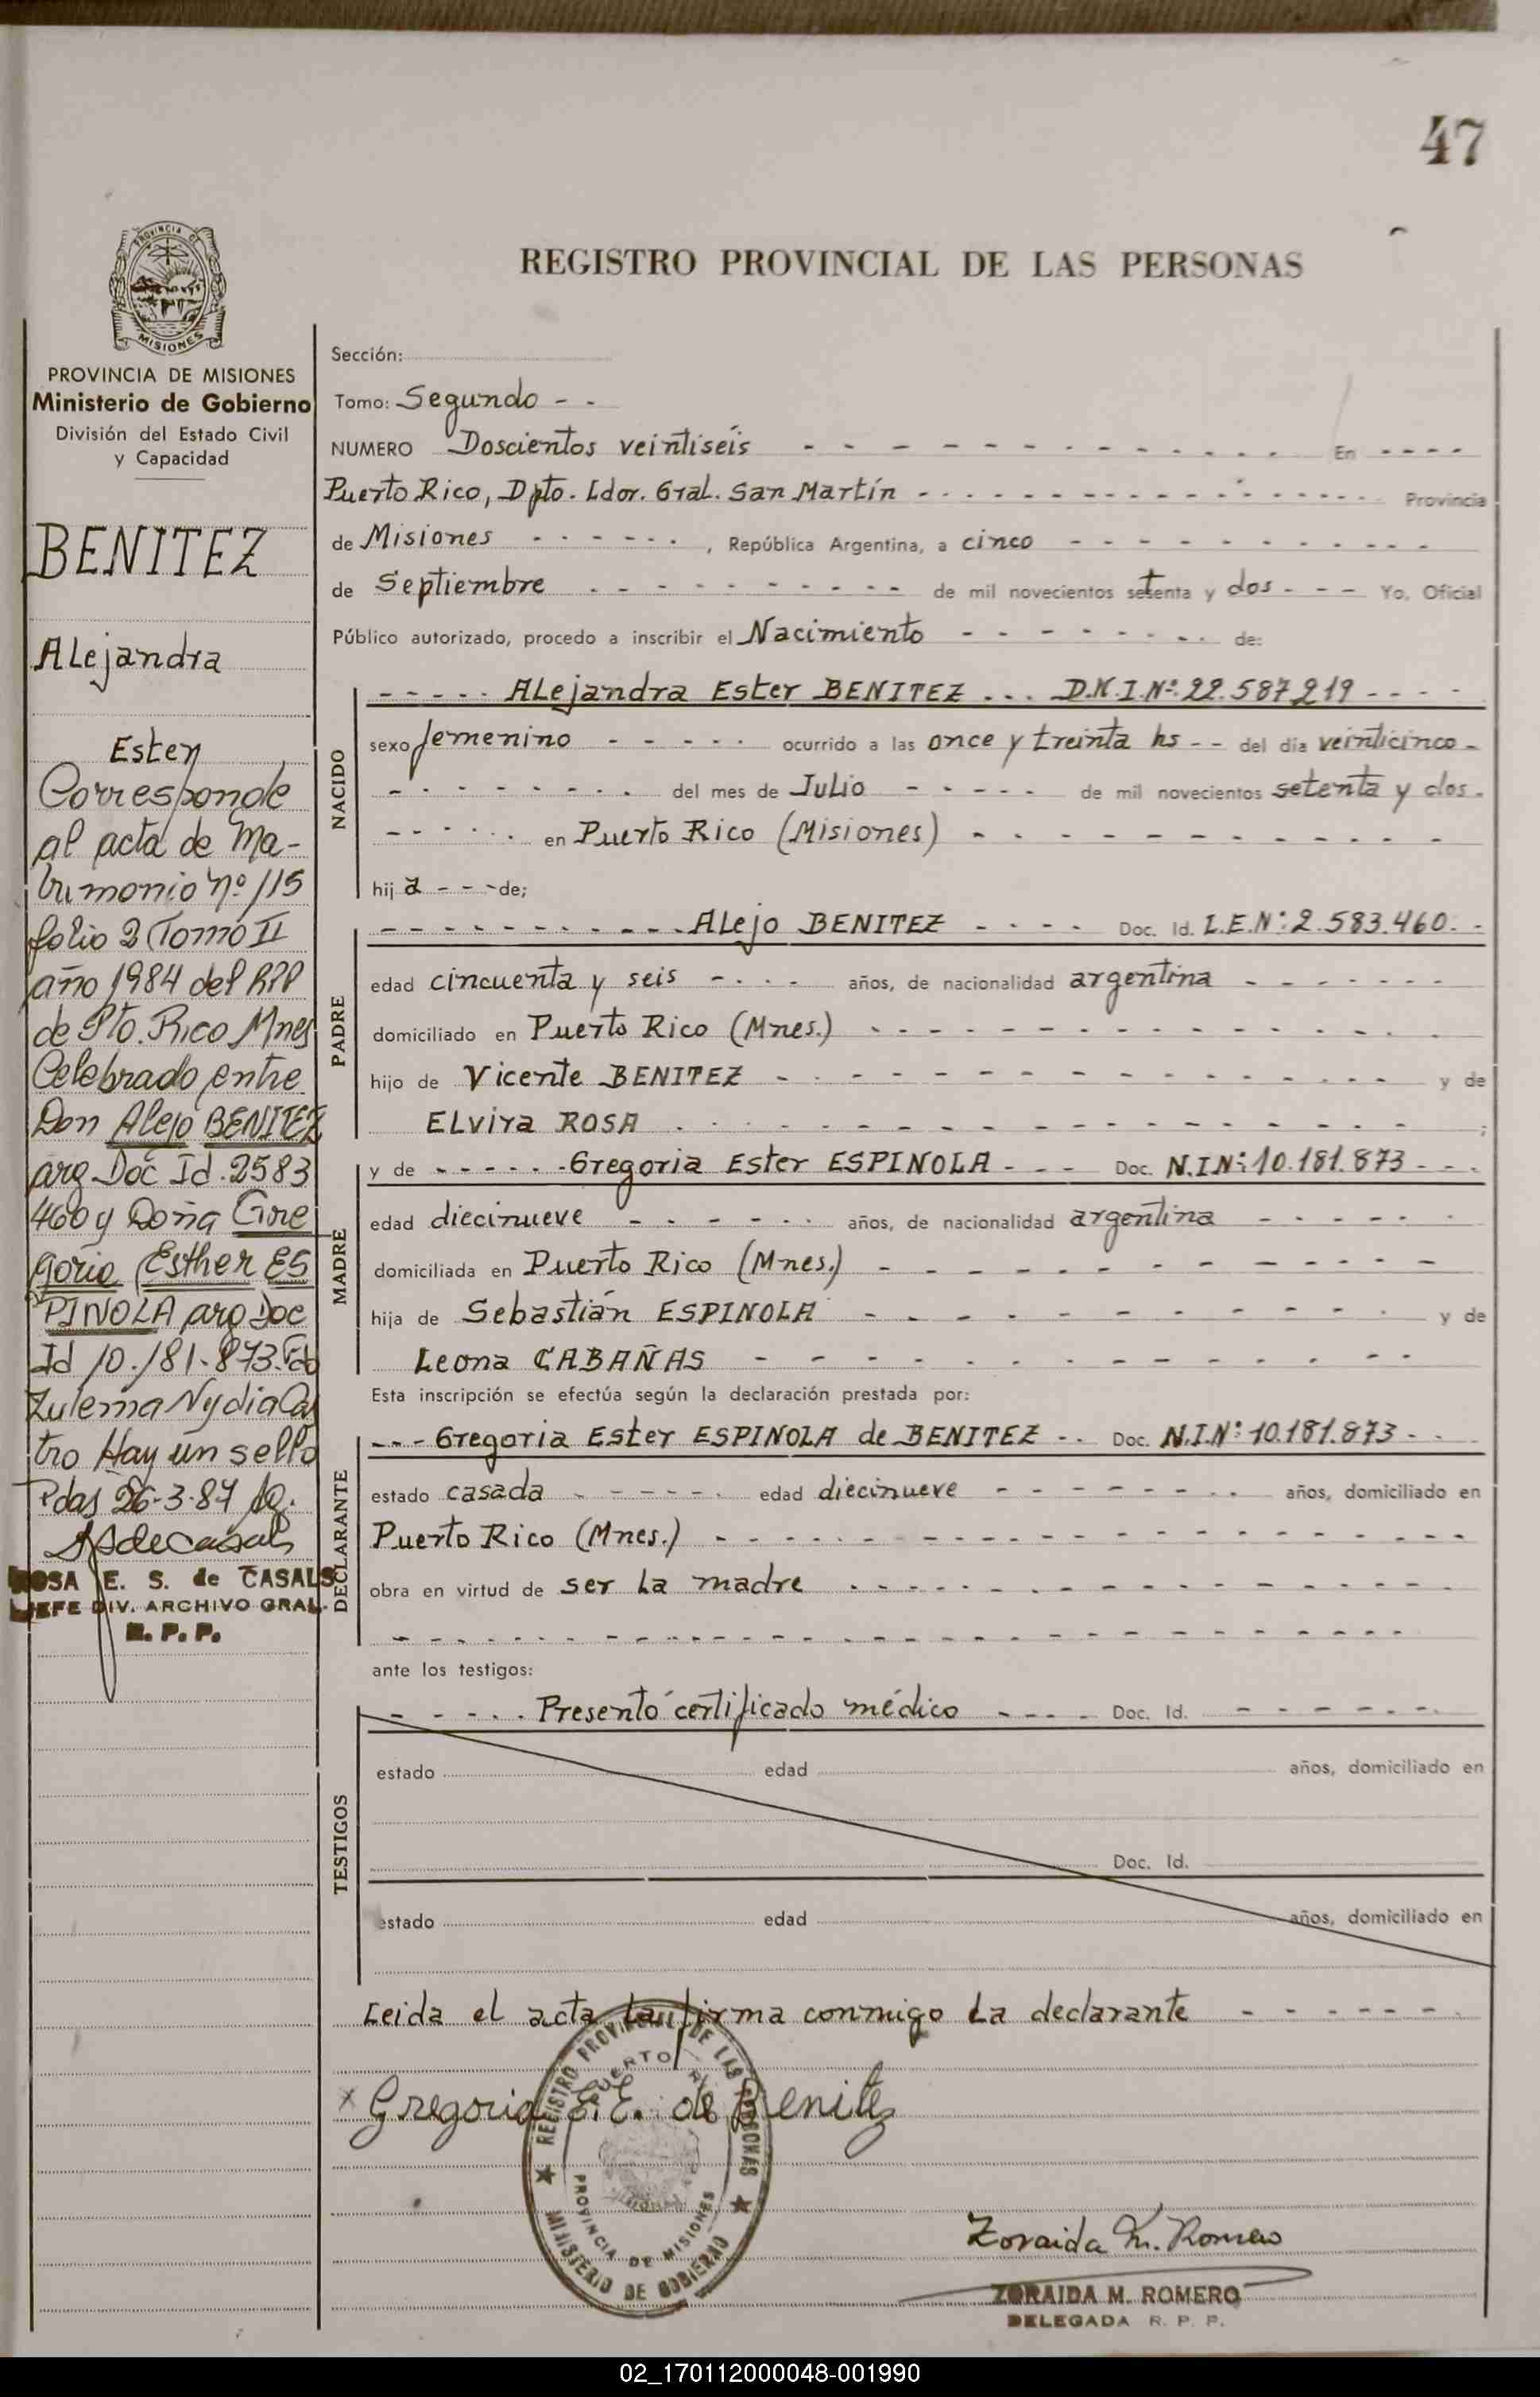 47
PROVINCIA DE
MISIONES
REGISTRO PROVINCIAL DE LAS PERSONAS
PROVINCIA DE MISIONES
Ministerio de Gobierno
División del Estado Civil
y Capacidad
BENITEZ
Alejandra
Ester
Corresponde
al acta de Ma-
trimonio nº 115
folio 2 Tomo II
año 1984 del RPP
de Pto. Rico Mnes
Celebrado entre
Don Alejo BENITEZ
arg Doc Id. 2583
460 y Doña Gre
goria Esther ES
PINOLA arg Doc
Id 10.181.873 Fdo
Zulema Nydia Cas
tro Hay un sello
Pdas 26-3-87
ROSA E. S. de CASALS
JEFE DIV. ARCHIVO GRAL.
R. P. P.
Sección:
Tomo: Segundo - -
NUMERO Doscientos veintiséis - - - - En - - - -
Puerto Rico, Dpto. Ldor. Gral. San Martín - - - - Provincia
de Misiones - - - - , República Argentina, a cinco - - - -
de Septiembre - - - - de mil novecientos setenta y dos - - - Yo, Oficial
Público autorizado, procedo a inscribir el Nacimiento - - - - de:
NACIDO
- - - - - Alejandra Ester BENITEZ ... D.N.I.Nº: 22.587.219 - - - -
sexo femenino - - - - - ocurrido a las once y treinta hs - - del día veinticinco -
- - - - del mes de Julio - - - - - de mil novecientos setenta y dos.
- - - - en Puerto Rico (Misiones) - - - -
hij a - - - de;
PADRE
- - - - Alejo BENITEZ - - - - Doc. Id. L.E.Nº: 2.583.460. -
edad cincuenta y seis - - - - años, de nacionalidad argentina - - - -
domiciliado en Puerto Rico (Mnes.) - - - -
hijo de Vicente BENITEZ - - - - y de
Elvira ROSA - - - - ;
MADRE
y de - - - - - Gregoria Ester ESPINOLA - - - Doc. N.I.Nº: 10.181.873 - - -
edad diecinueve - - - - años, de nacionalidad argentina - - - -
domiciliada en Puerto Rico (Mnes.) - - - -
hija de Sebastián ESPINOLA - - - - y de
Leona CABAÑAS - - - -
Esta inscripción se efectúa según la declaración prestada por:
DECLARANTE
- - - Gregoria Ester ESPINOLA de BENITEZ - - Doc. N.I.Nº: 10.181.873 - -
estado casada - - - - edad diecinueve - - - - años, domiciliado en
Puerto Rico (Mnes.) - - - -
obra en virtud de ser la madre - - - -
- - - -
ante los testigos:
TESTIGOS
- - - - Presentó certificado médico - - - - Doc. Id. - - - -
estado edad años, domiciliado en
Doc. Id.
estado edad años, domiciliado en
Leida el acta la firma conmigo la declarante - - - -
x Gregoria E. E. de Benitez
REGISTRO PROVINCIAL DE LAS PERSONAS
PUERTO RICO
PROVINCIA DE MISIONES
MINISTERIO DE GOBIERNO
Zoraida M. Romero
ZORAIDA M. ROMERO
DELEGADA R. P. P.
02_170112000048-001990